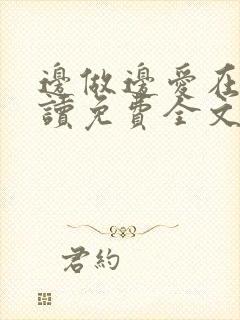 邊做邊愛在
讀免費全文
君約